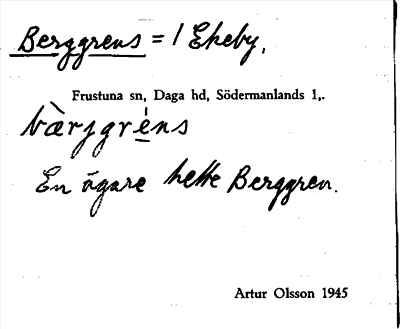 Berggrens = 1 Ekeby,
Frustuna sn, Daga hd, Södermanlands l,.
bær̀jgréns
En ägare hette Berggren.
Artur Olsson 1945